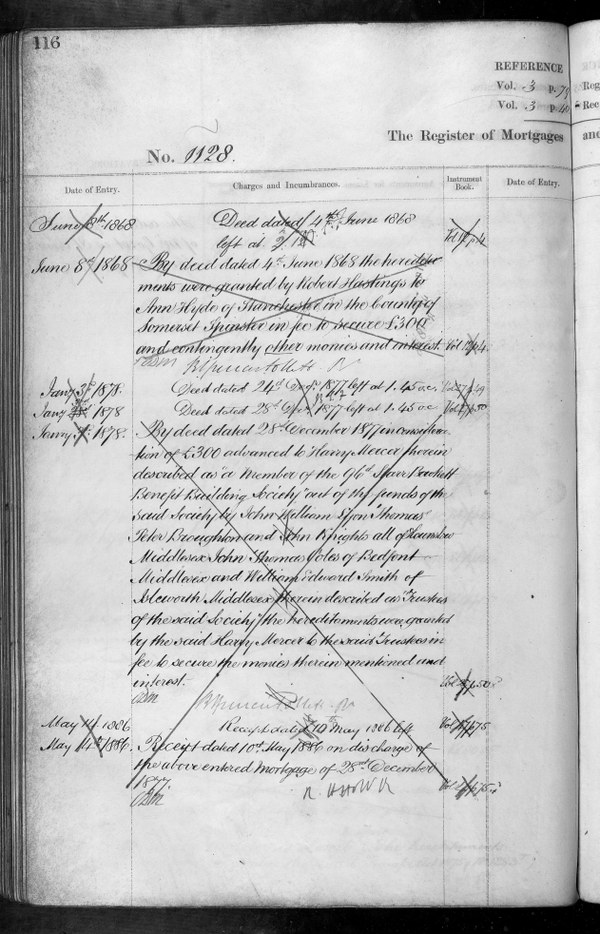 116
REFERENCE
Vol. 3 p. 78
Vol. 3 p. 40
Reg
Rec
No. 1128.
The Register of Mortgages
and
Date of Entry.
Charges and Incumbrances.
Instrument Book.
Date of Entry.
June 8th 1868
Deed dated 4th June 1868
left at 2
June 8th 1868
By deed dated 4th June 1868 the heredita
ments were granted by Robert Hastings to
Ann Hyde of in the County of
Somerset Spinster in fee to secure £300
and contingently other monies and interest.
Jany 1878.
Deed dated 24th Decr. 1877 left at 1.45 o.c.
Jany 1878
Deed dated 28th Decr. 1877 left at 1.45 o.c.
Janry 1878.
By deed dated 28th December 1877 in considera
tion of £300 advanced to Harry Mercer therein
described as "a Member of the 96th Starr Bowkett
Benefit Building Society" out of the funds of the
said Society by John William Thomas
Peter Broughton and John Knights all of Hounslow
Middlesex John Thomas Coles of Bedfont
Middlesex and William Edward Smith of
Isleworth Middlesex therein described as "Trustees
of the said Society" the hereditaments were granted
by the said Harry Mercer to the said Trustees in
fee to secure the monies therein mentioned and
interest.
May 14 1886
Receipt dated 10th May 1886 left
May 14th 1886.
Receipt dated 10th May 1886 on discharge of
the above entered Mortgage of 28th December
1877.